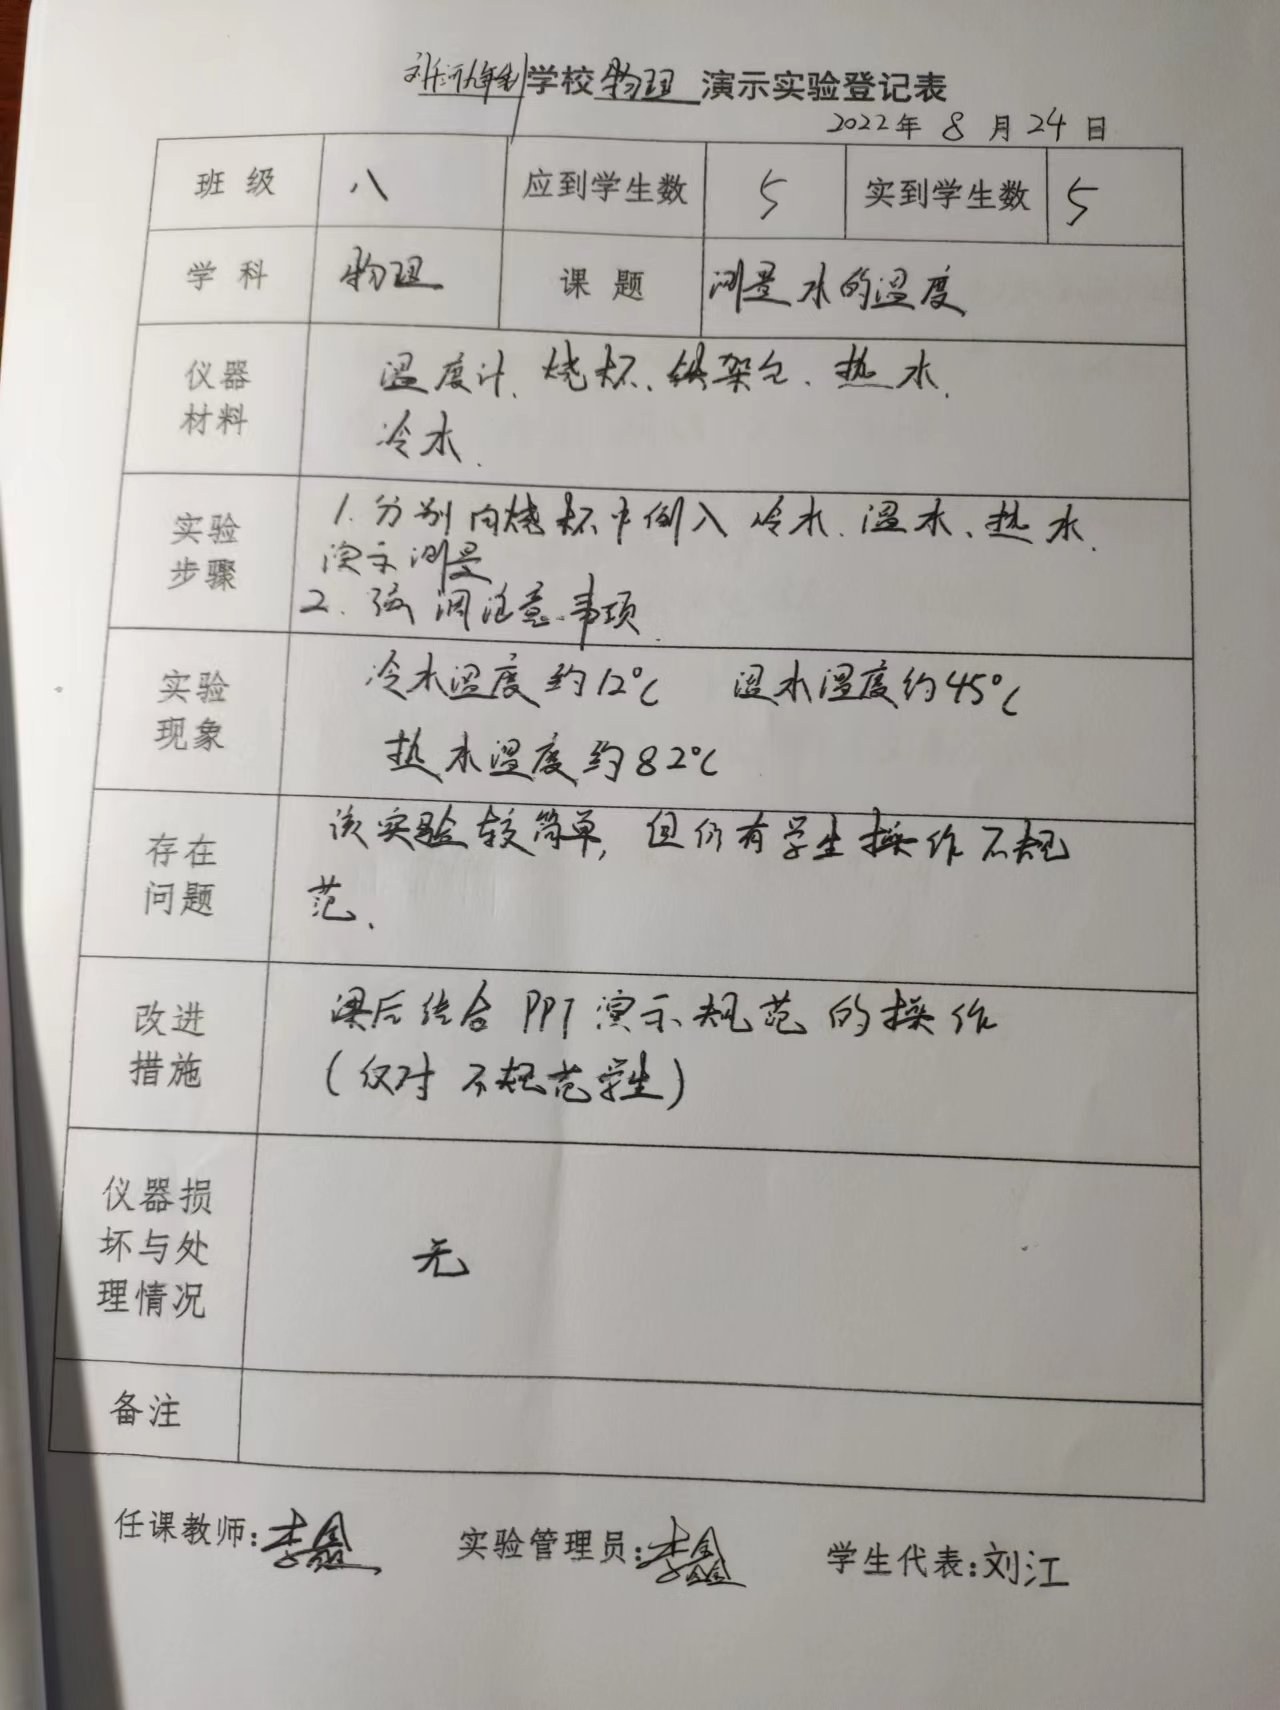 刘 九年制学校 物理 演示实验登记表
2022年 8 月 24 日
班 级 八 应到学生数 5 实到学生数 5
学 科 物理 课 题 测量水的温度
仪器材料
温度计、烧杯、铁架台、热水、
冷水、
实验步骤
1. 分别向烧杯中倒入冷水、温水、热水、
演示测量
2. 强调注意事项
实验现象
冷水温度约12℃ 温水温度约45℃
热水温度约82℃
存在问题
该实验较简单, 但仍有学生操作不规
范、
改进措施
课后结合PPT演示规范的操作
(仅对不规范学生)
仪器损坏与处理情况
无
备注
任课教师: 李鑫 实验管理员: 李鑫 学生代表: 刘江